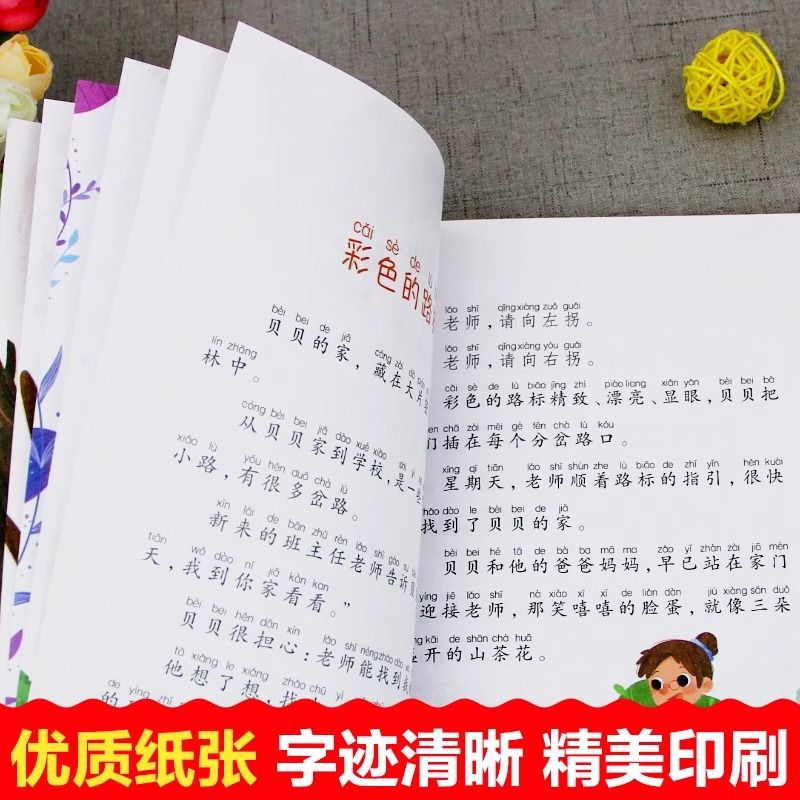 cǎi sè de
彩色的路
bèi bei de jiā
贝贝的家，藏在大片
lín zhōng
林中。
cóng bèi bei jiā dào xué xiào
从贝贝家到学校，是一些
xiǎo lù yǒu hěn duō chà lù
小路，有很多岔路。
xīn lái de bān zhǔ rèn lǎo shī gào su
新来的班主任老师告诉贝
tiān wǒ dào nǐ jiā kàn kan
天，我到你家看看。”
bèi bei hěn dān xīn lǎo shī néng zhǎo dào
贝贝很担心：老师能找到我
tā xiǎng le xiǎng zhǎo chū
他想了想，找
lǎo shī qǐng xiàng zuǒ guǎi
老师，请向左拐。
lǎo shī qǐng xiàng yòu guǎi
老师，请向右拐。
cǎi sè de lù biāo jīng zhì piào liang xiǎn yǎn bèi bei bǎ
彩色的路标精致、漂亮、显眼，贝贝把
men chā zài měi gè fēn chà lù kǒu
们插在每个分岔路口。
xīng qī tiān lǎo shī shùn zhe lù biāo de zhǐ yǐn hěn kuài
星期天，老师顺着路标的指引，很快
zhǎo dào le bèi bei de jiā
找到了贝贝的家。
bèi bei hé tā de bà ba mā ma zǎo yǐ zhàn zài jiā mén
贝贝和他的爸爸妈妈，早已站在家门
yíng jiē lǎo shī nà xiào xī xī de liǎn dàn jiù xiàng sān duǒ
迎接老师，那笑嘻嘻的脸蛋，就像三朵
kāi de shān chá huā
开的山茶花。
优质纸张 字迹清晰 精美印刷